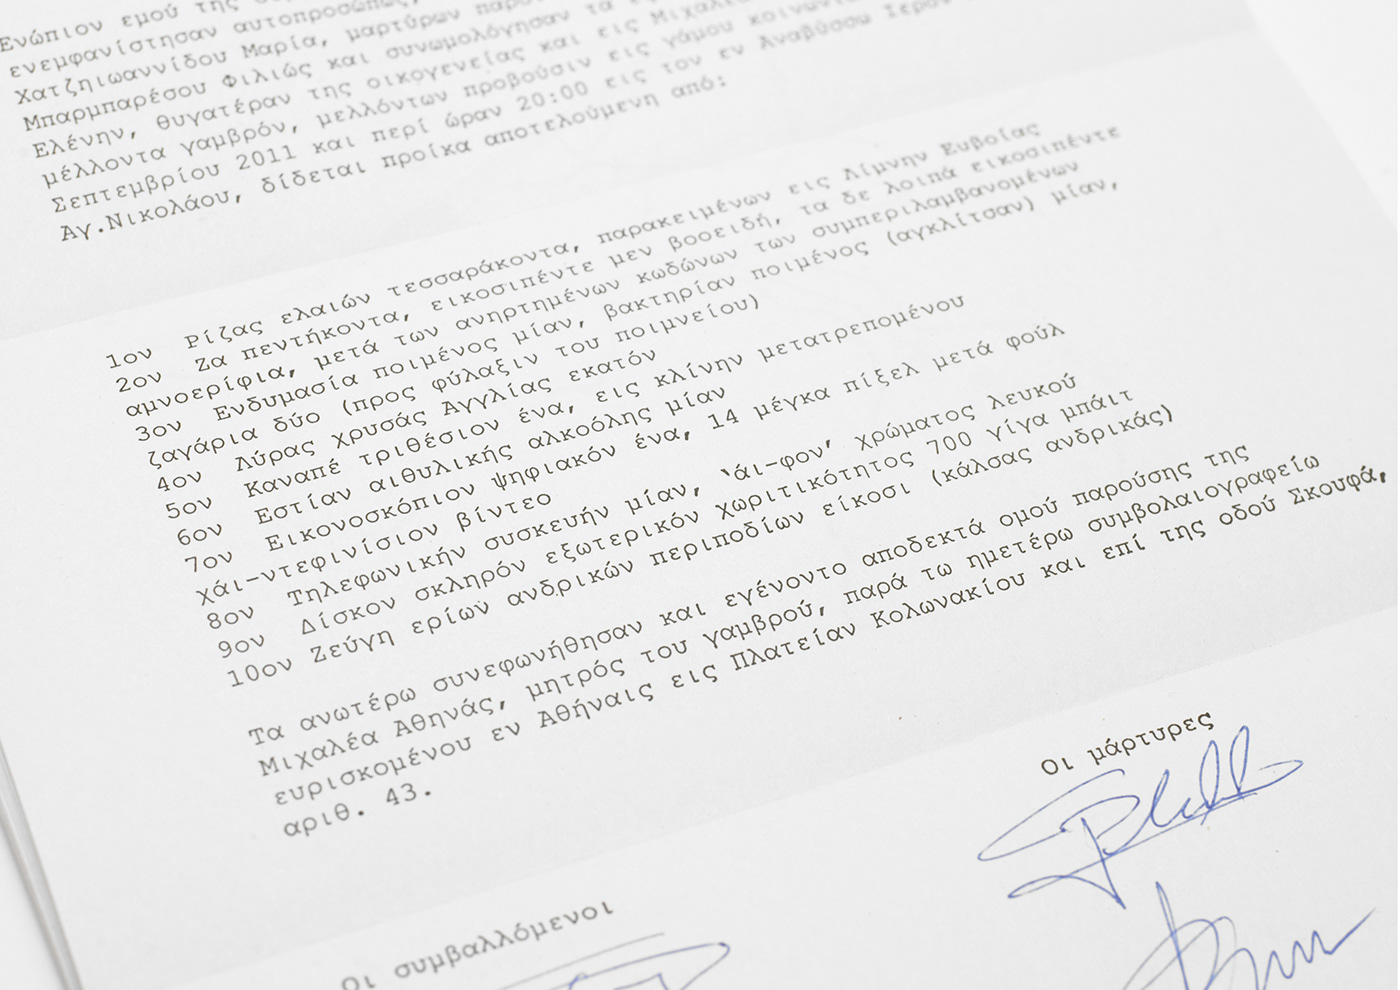 Ενώπιον εμού της
ενεμφανίστησαν αυτοπροσώπως,
Χατζηιωαννίδου Μαρία, μαρτύρων
Μπαρμπαρέσου Φιλιώς και συνωμολόγησαν τα
Ελένην, θυγατέραν της οικογενείας και εις Μιχαλέα
μέλλοντα γαμβρόν, μελλόντων προβούσιν εις γάμου κοινωνίαν
Σεπτεμβρίου 2011 και περί ώραν 20:00 εις τον εν Αναβύσσω Ιερόν
Αγ.Νικολάου, δίδεται προίκα αποτελούμενη από:
1ον Ρίζας ελαιών τεσσαράκοντα, παρακειμένων εις Λίμνην Ευβοίας
2ον Ζα πεντήκοντα, εικοσιπέντε μεν βοοειδή, τα δε λοιπά εικοσιπέντε
αμνοερίφια, μετά των ανηρτημένων κωδώνων των συμπεριλαμβανομένων
3ον Ενδυμασία ποιμένος μίαν, βακτηρίαν ποιμένος (αγκλίτσαν) μίαν,
ζαγάρια δύο (προς φύλαξιν του ποιμνείου)
4ον Λύρας χρυσάς Αγγλίας εκατόν
5ον Καναπέ τριθέσιον ένα, εις κλίνην μετατρεπομένου
6ον Εστίαν αιθυλικής αλκοόλης μίαν
7ον Εικονοσκόπιον ψηφιακόν ένα, 14 μέγκα πίξελ μετά φούλ
χάι-ντεφινίσιον βίντεο
8ον Τηλεφωνικήν συσκευήν μίαν, ‛άι-φον’ χρώματος λευκού
9ον Δίσκον σκληρόν εξωτερικόν χωριτικότητος 700 γίγα μπάιτ
10ον Ζεύγη ερίων ανδρικών περιποδίων είκοσι (κάλσας ανδρικάς)
Τα ανωτέρω συνεφωνήθησαν και εγένοντο αποδεκτά ομού παρούσης της
Μιχαλέα Αθηνάς, μητρός του γαμβρού, παρά τω ημετέρω συμβολαιογραφείω
ευρισκομένου εν Αθήναις εις Πλατείαν Κολωνακίου και επί της οδού Σκουφά,
αριθ. 43.
Οι μάρτυρες
Οι συμβαλλόμενοι